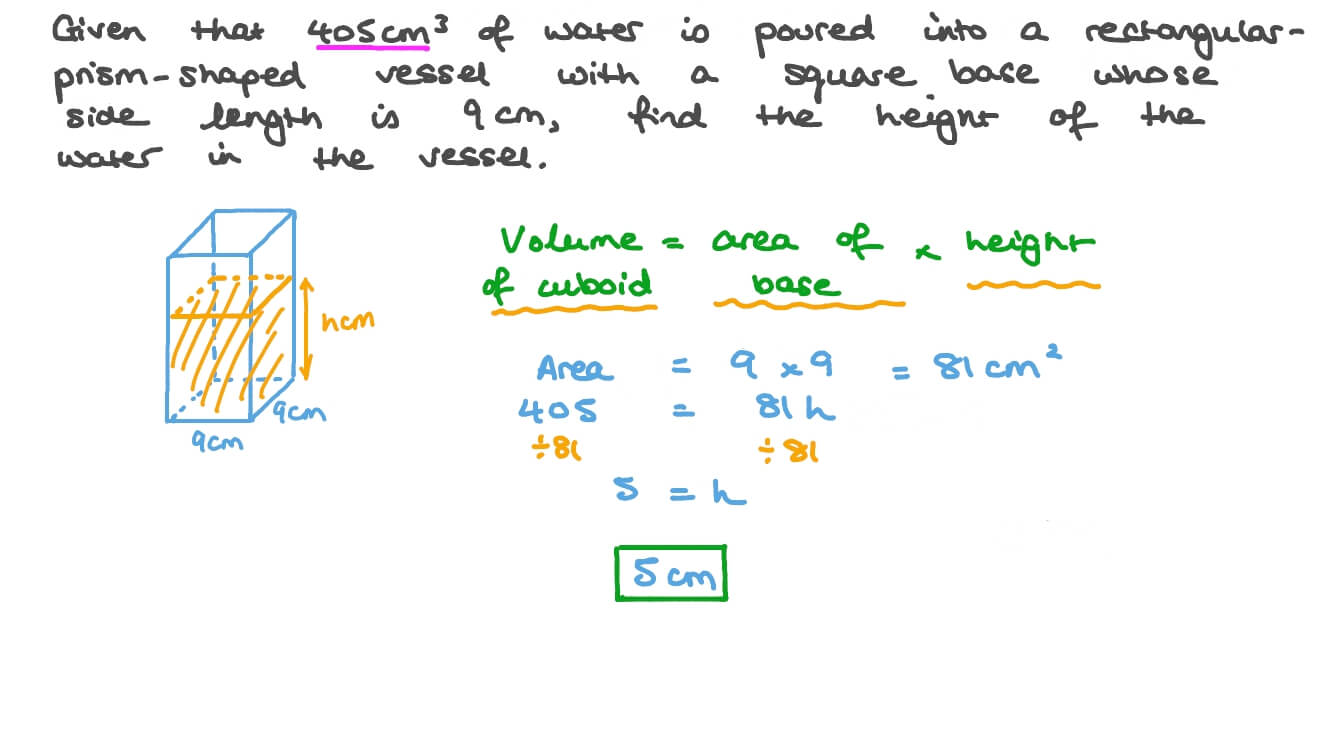 Given that 405cm³ of water is poured into a rectangular-
prism-shaped vessel with a square base whose
side length is 9cm, find the height of the
water in the vessel.
Volume = area of × height
of cuboid base
hcm
9cm
9cm
Area = 9 × 9 = 81 cm²
405 = 81 h
÷81 ÷81
5 = h
5 cm